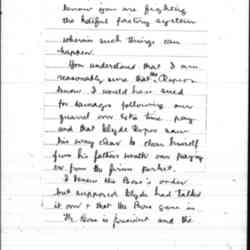 know you are fighting
the hateful factory system
wherein such things can
happen.
You understand that I am
reasonably sure that the Ropers
know I would have sued
for damages following our
quarrel over this time pay
and that Clyde Roper saw
his way clear to clear himself
from his father's wrath over paying
from the firm's pocket.
I knew the Boss's order
but supposed Clyde had talked
it over & that the Boss gave in
The Boss is president and the